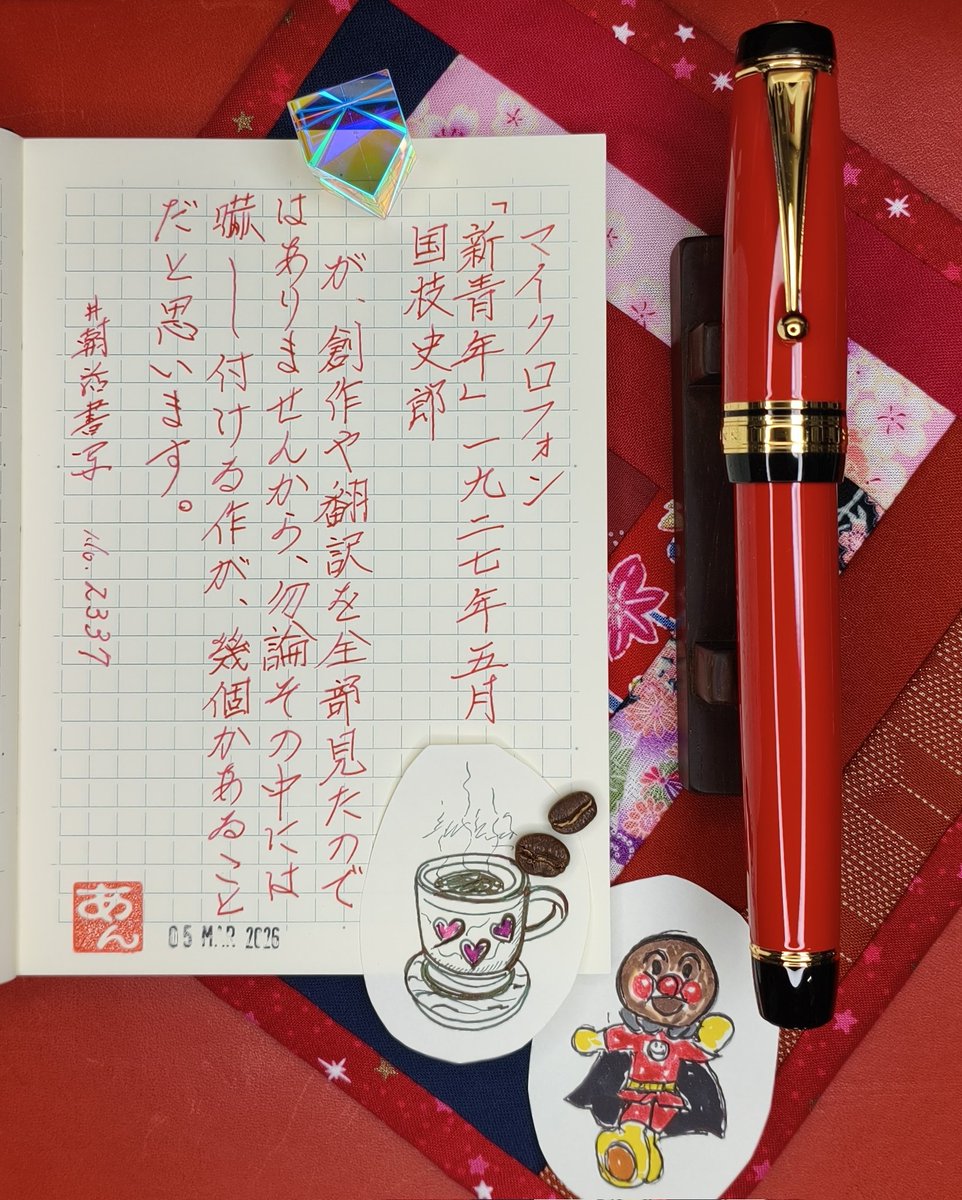 マイクロフォン
「新青年」一九二七年五月
国枝史郎
が、創作や翻訳を全部見たので
はありませんから、勿論その中には
嚇し付ける作が、幾個かあること
だと思います。
#朝活書写 No.2337
あん
05 MAR 2026